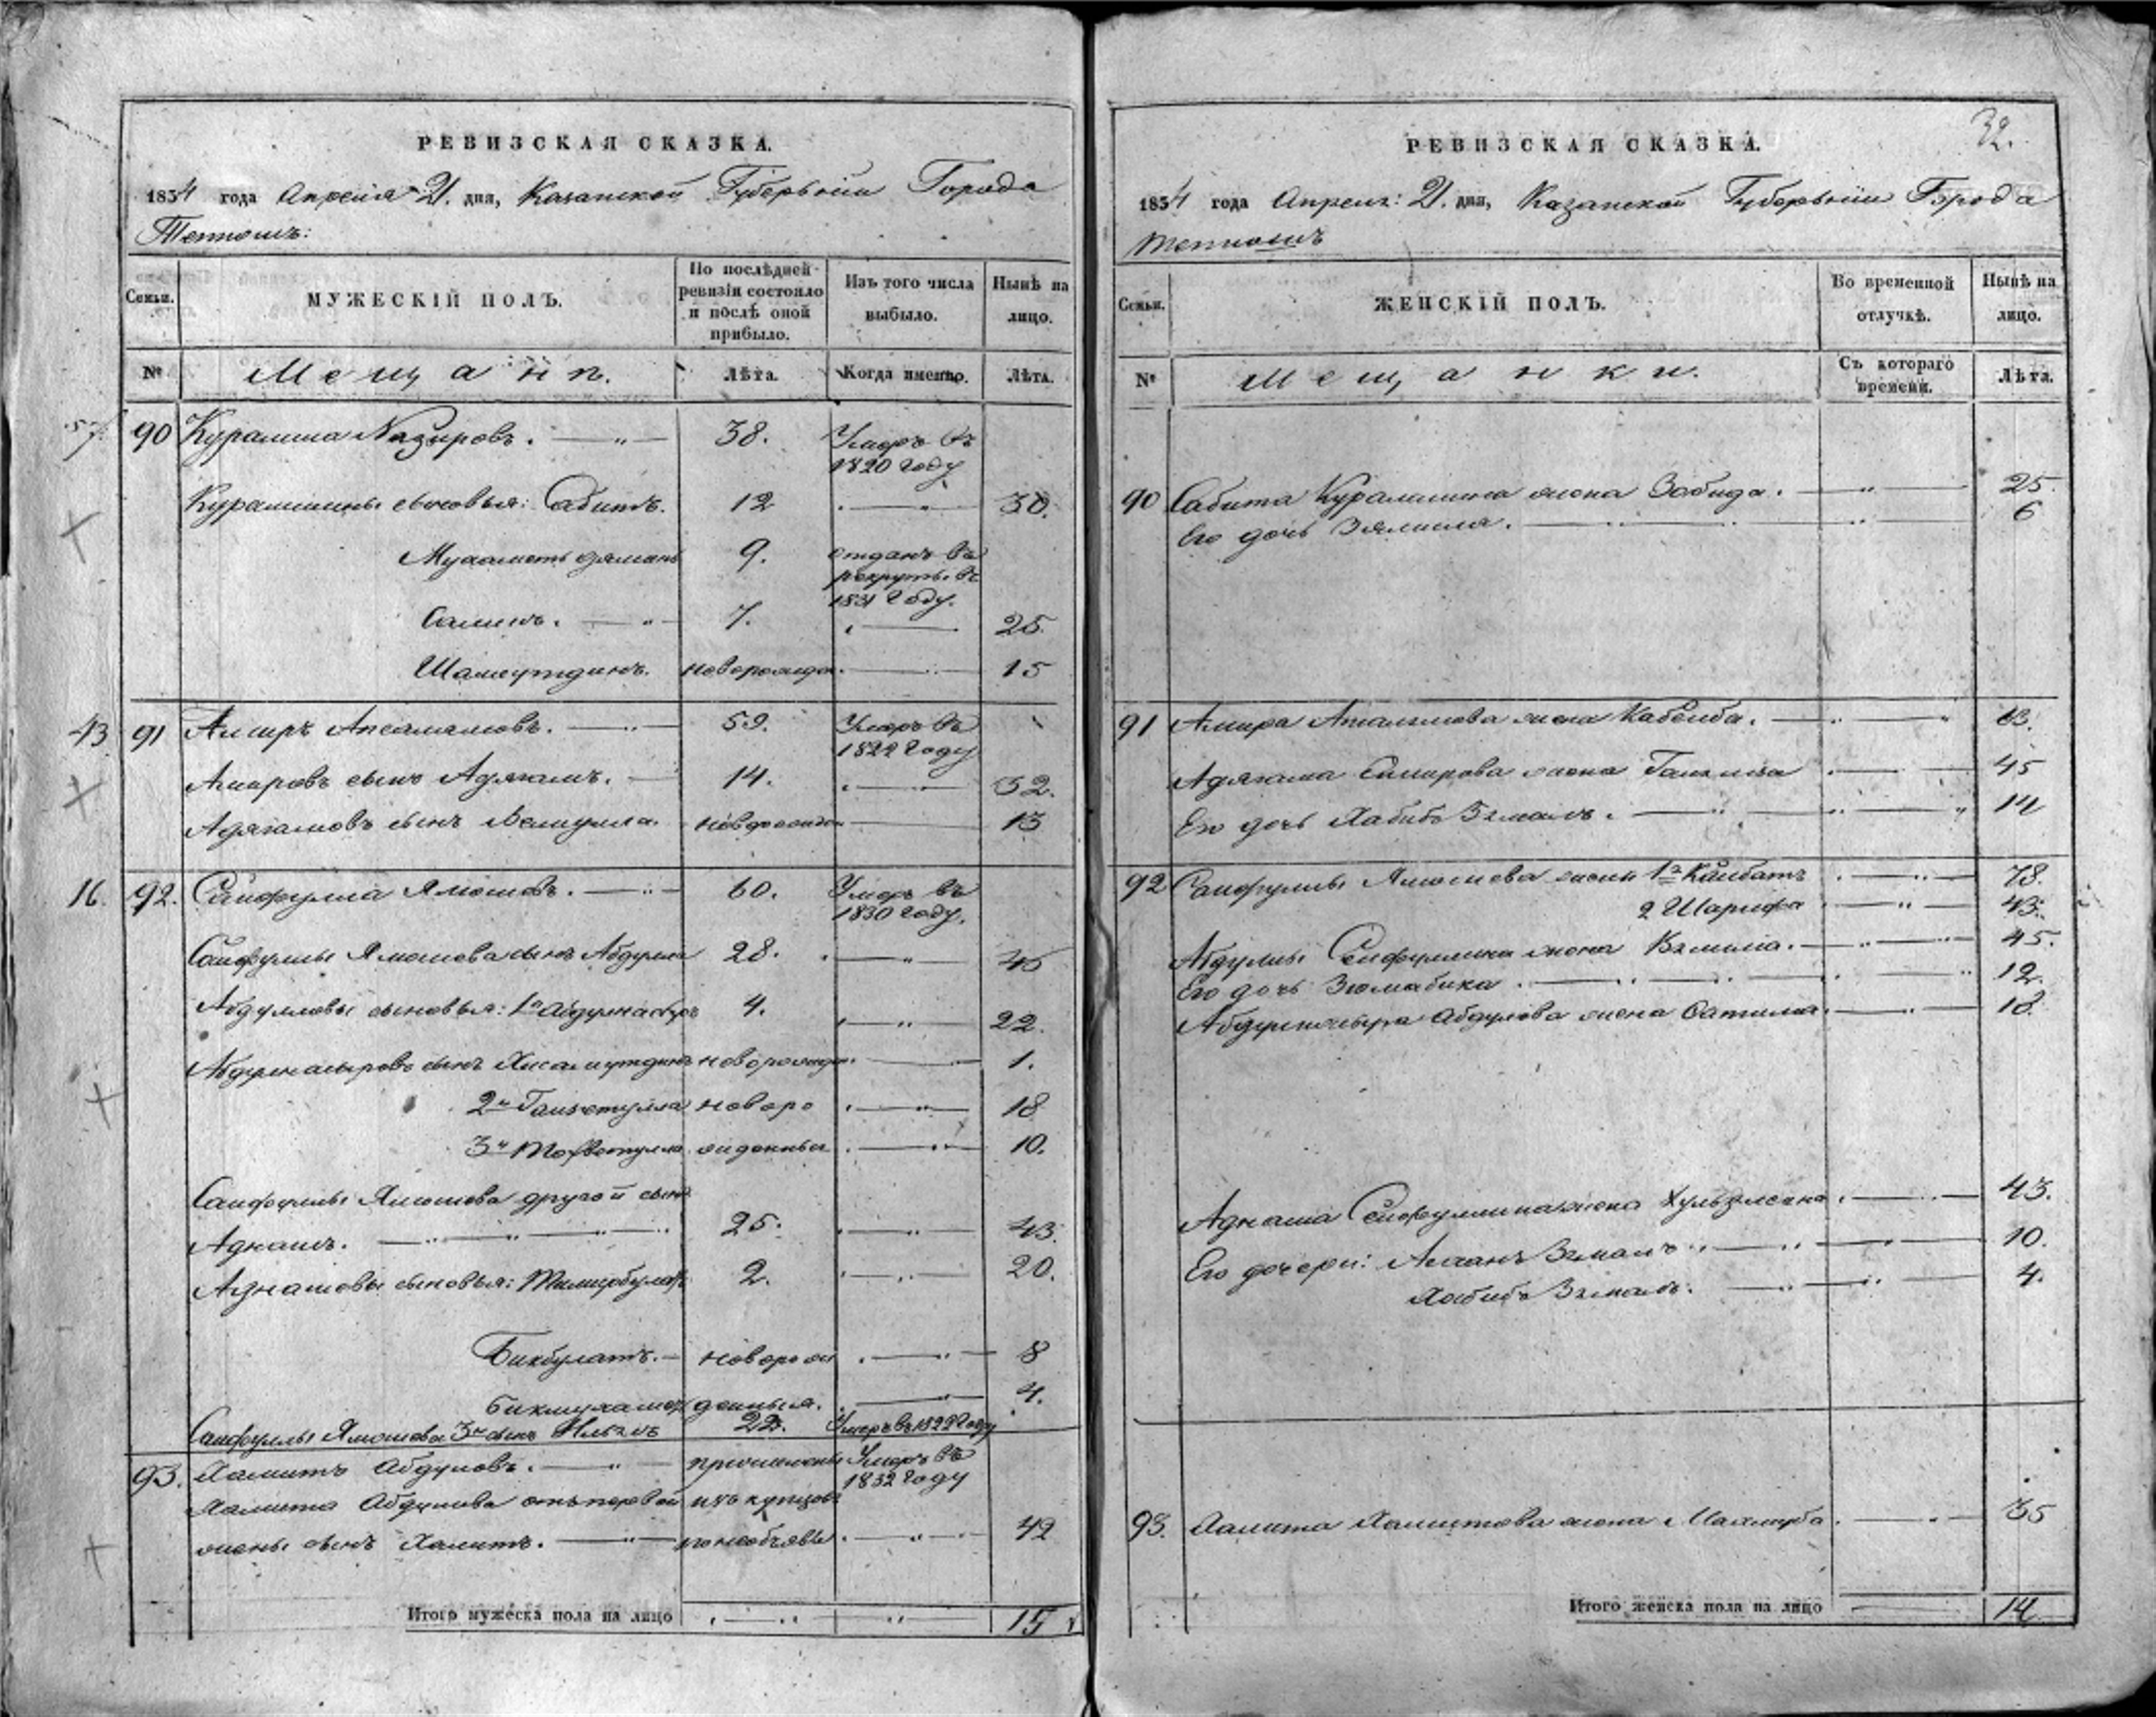 РЕВИЗСКАЯ СКАЗКА.
1834 года Апреля 21. дня, Казанской Губернiи Города
Семьи.
МУЖЕСКIЙ ПОЛЪ.
По послѣдней ревизiи состояло и послѣ оной прибыло.
Изъ того числа выбыло.
Нынѣ на лицо.
№
Мещане.
Лѣта.
Когда именно.
Лѣта.
57. 90 Курамша Назировъ. 38. Умеръ въ
1820 году
Курамшины сыновья: Сабитъ. 12 30.
Мухаметь 9. отданъ въ
рекруты въ
1831 году.
Салимъ. 7. 25.
Шамсутдинъ. новорожден. 15
43 91 Амиръ Апсалямовъ. 59. Умеръ въ
1822 году
Амировъ сынъ Адягамъ. 14. 32.
Адягамовъ сынъ Велиулла. новорожден 13
16. 92. Сайфулла Ямашовъ. 60. Умеръ въ
1830 году.
Сайфуллы Ямашова сынъ Абдулла 28. 45
Абдулловы сыновья: 1й Абдулнасыръ 4. 22.
Абдулнасыровъ сынъ Хисамутдинъ новорожден. 1.
2й новоро 18
3й жденныя 10.
Сайфуллы Ямашова другой сынъ
Аднашъ. 25. 43.
Аднашовы сыновья: Тимирбулатъ 2. 20.
Бикбулатъ. новорож 8
Бикмухамет денныя. 4.
Сайфуллы Ямашова 3й сынъ 22. Умеръ въ 1822 году
93. Хамитъ Абдуловъ. Умеръ въ
1832 году
Хамита Абдулова отъ первой изъ купцовъ
жены сынъ Халитъ. 42
Итого мужеска пола на лицо 15
РЕВИЗСКАЯ СКАЗКА.
32.
1834 года Апреля: 21. дня, Казанской Губернiи Города
Семьи.
ЖЕНСКIЙ ПОЛЪ.
Во временной отлучкѣ.
Нынѣ на лицо.
№
Мещанки.
Съ котораго времени.
Лѣта.
90 Сабита Курамшина жена Забида. 25.
Его дочь Зялиля. 6
91 Амира Апсалямова жена 63.
Адягама Емирова жена 45
Его дочь Хабибъ Зямалъ. 14
92 Сайфуллы Ямашева жены 1я 78.
2 Шарифа 43.
Абдуллы Сейфуллина жена 45.
Его дочь Зюмабика. 12.
Абдулнасыра Абдулова жена 18.
Аднаша Сейфуллина жена 43.
Его дочери: Зямалъ 10.
Хабибъ Зямалъ. 4.
93. Халита Хамитова жена 35
Итого женска пола на лицо 14